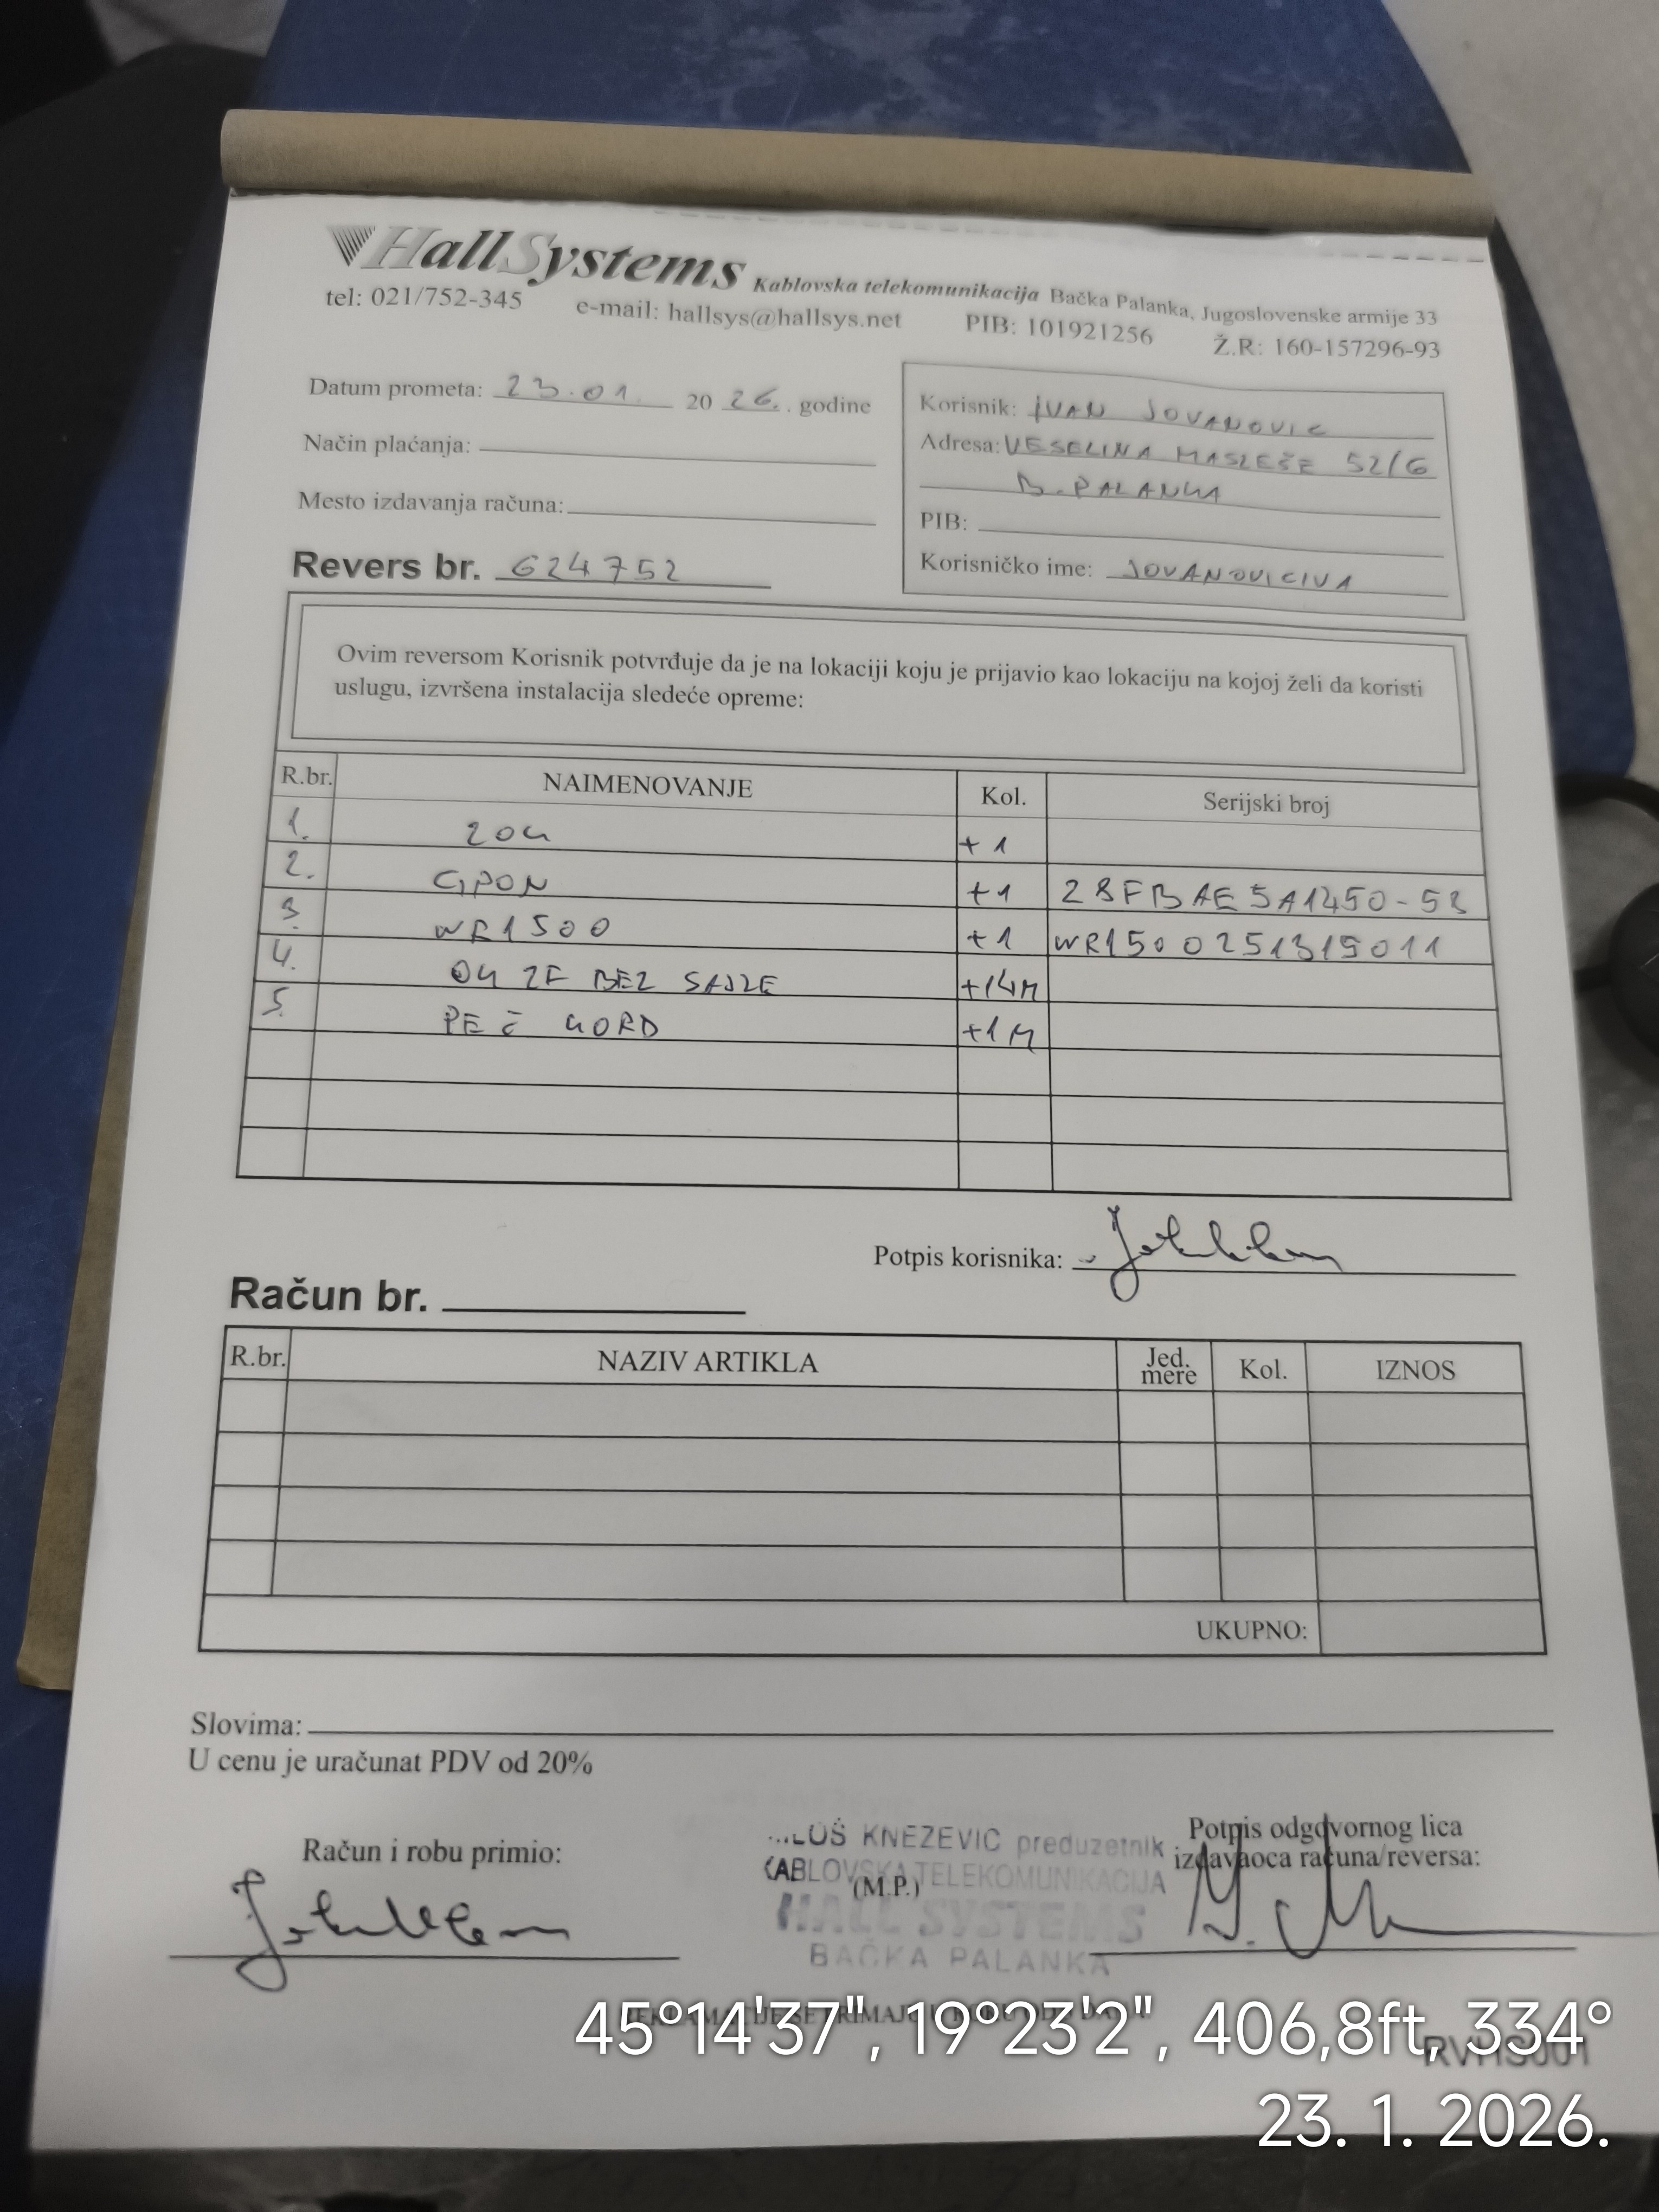 HallSystems Kablovska telekomunikacija Bačka Palanka, Jugoslovenske armije 33
tel: 021/752-345 e-mail: hallsys@hallsys.net PIB: 101921256 Ž.R: 160-157296-93
Datum prometa: 23.01. 20 26. godine
Način plaćanja:
Mesto izdavanja računa:
Revers br. 624752
Korisnik: IVAN JOVANOVIC
Adresa: VESELINA MASLEŠE 52/6
B. PALANKA
PIB:
Korisničko ime: JOVANOVICIVA
Ovim reversom Korisnik potvrđuje da je na lokaciji koju je prijavio kao lokaciju na kojoj želi da koristi
uslugu, izvršena instalacija sledeće opreme:
R.br. NAIMENOVANJE Kol. Serijski broj
1. ZOK +1
2. GPON +1 28FBAE5A1450-58
3. WR1500 +1 WR1500251315011
4. OK 2F BEZ SAJLE +14M
5. PEČ KORD +1M
Potpis korisnika:
Račun br.
R.br. NAZIV ARTIKLA Jed. mere Kol. IZNOS
UKUPNO:
Slovima:
U cenu je uračunat PDV od 20%
Račun i robu primio:
LOŠ KNEZEVIC preduzetnik
KABLOVSKA TELEKOMUNIKACIJA
(M.P.)
HALL SYSTEMS
BAČKA PALANKA
Potpis odgovornog lica
izdavaoca računa/reversa:
45°14'37", 19°23'2", 406,8ft, 334°
RVHS001
23. 1. 2026.